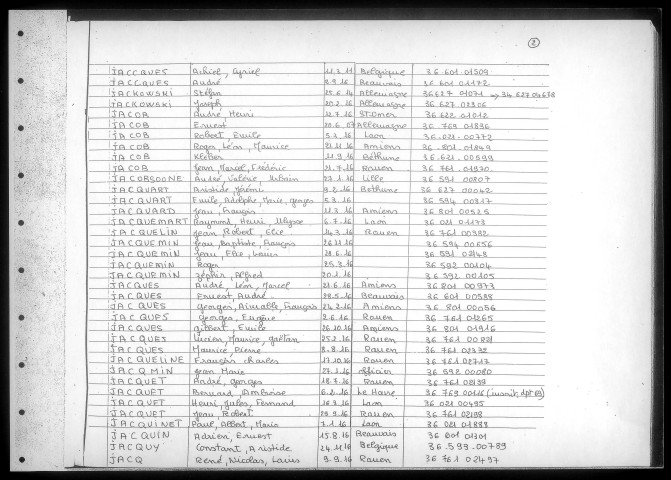 2
JACCQUES Achiel, Cyriel 11.3.11 Belgique 36 601 01509
JACCQUES André 2.9.16 Beauvais 36 601 01172
JACKOWSKI Stefan 25.6.14 Allemagne 36627 01071 → 34 627 04678
JACKOWSKI Joseph 20.2.16 Allemagne 36 627 02306
JACOB André, Henri 12.7.16 St-Omer 36 622 01012
JACOB Ernest 20.6.07 Allemagne 36 769 01896
JACOB Robert, Emile 5.3.16 Laon 36.021.00772
JACOB Roger, Léon, Maurice 21.11.16 Amiens 36.801.01849
JACOB Kléber 11.9.16 Béthune 36.621.00599
JACOB Jean, Marcel, Frédéric 21.7.16 Rouen 36 761 01970
JACOBSOONE André, Valérie, Urbain 27.1.16 Lille 36 591 00807
JACQUART Aristide, Jérémi 9.2.16 Bethune 36 627 00042
JACQUART Emile, Adolphe, Marie, Georges 5.3.16 36 594 00317
JACQUARD Jean, François 11.3.16 Amiens 36 801 00525
JACQUEMART Raymond, Henri, Ulysse 6.7.16 Laon 36 021 01173
JACQUELIN Jean, Robert, Elie 14.3.16 Rouen 36 761 00382
JACQUEMIN Jean, Baptiste, François 26.11.16 36 594 00656
JACQUEMIN Jean, Elie, Louis 28.6.16 36 591 02148
JACQUEMIN Roger 25.3.16 36 592 00104
JACQUEMIN Zéphir, Alfred 20.1.16 36 592 00105
JACQUES André, Léon, Marcel 21.6.16 Amiens 36 801 00973
JACQUES Ernest, André 28.5.16 Beauvais 36 601 00588
JACQUES Georges, Aimable, François 24.2.16 Amiens 36 801 00056
JACQUES Georges, Eugène 2.6.16 Rouen 36 761 01265
JACQUES Gilbert, Emile 26.10.16 Amiens 36 801 01916
JACQUES Lucien, Maurice, Gaëtan 25.2.16 Rouen 36 761 00221
JACQUES Maurice, Pierre 8.8.16 Rouen 36 761 02232
JACQUELINE François Charles 17.10.16 Rouen 36 761 02717
JACQMIN Jean Marie 27.1.16 officier 36 592 00080
JACQUET André, Georges 18.7.16 Rouen 36 761 02139
JACQUET Bernard, Ambroise 6.2.16 Le Havre 36 769 00116 (inscrit dpt 69)
JACQUET Henri, Jules, Fernand 16.9.16 Laon 36 021 00495
JACQUET Jean, Robert 28.9.16 Rouen 36 761 02198
JACQUINET Paul, Albert, Marie 7.1.16 Laon 36 021 01888
JACQUIN Adrien, Ernest 15.8.16 Beauvais 36 601 01301
JACQUY Constant, Aristide 24.11.16 Belgique 36.593.00789
JACQ René, Nicolas, Louis 9.9.16 Rouen 36 761 02497